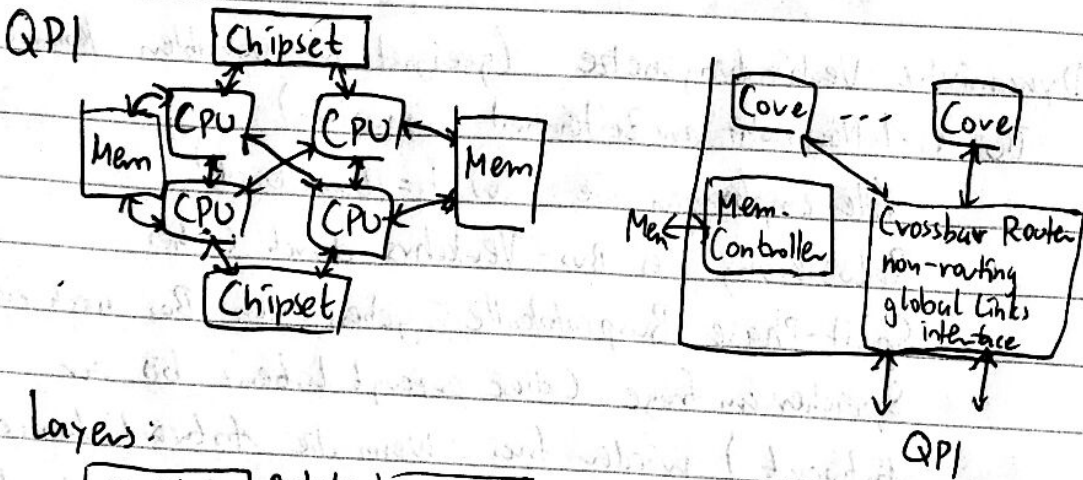 QPI
Chipset
CPU
CPU
Mem
Mem
CPU
CPU
Chipset
Core ... Core
Mem
Mem.
Controller
Crossbar Router
non-routing
global Links
interface
QPI
Layers: